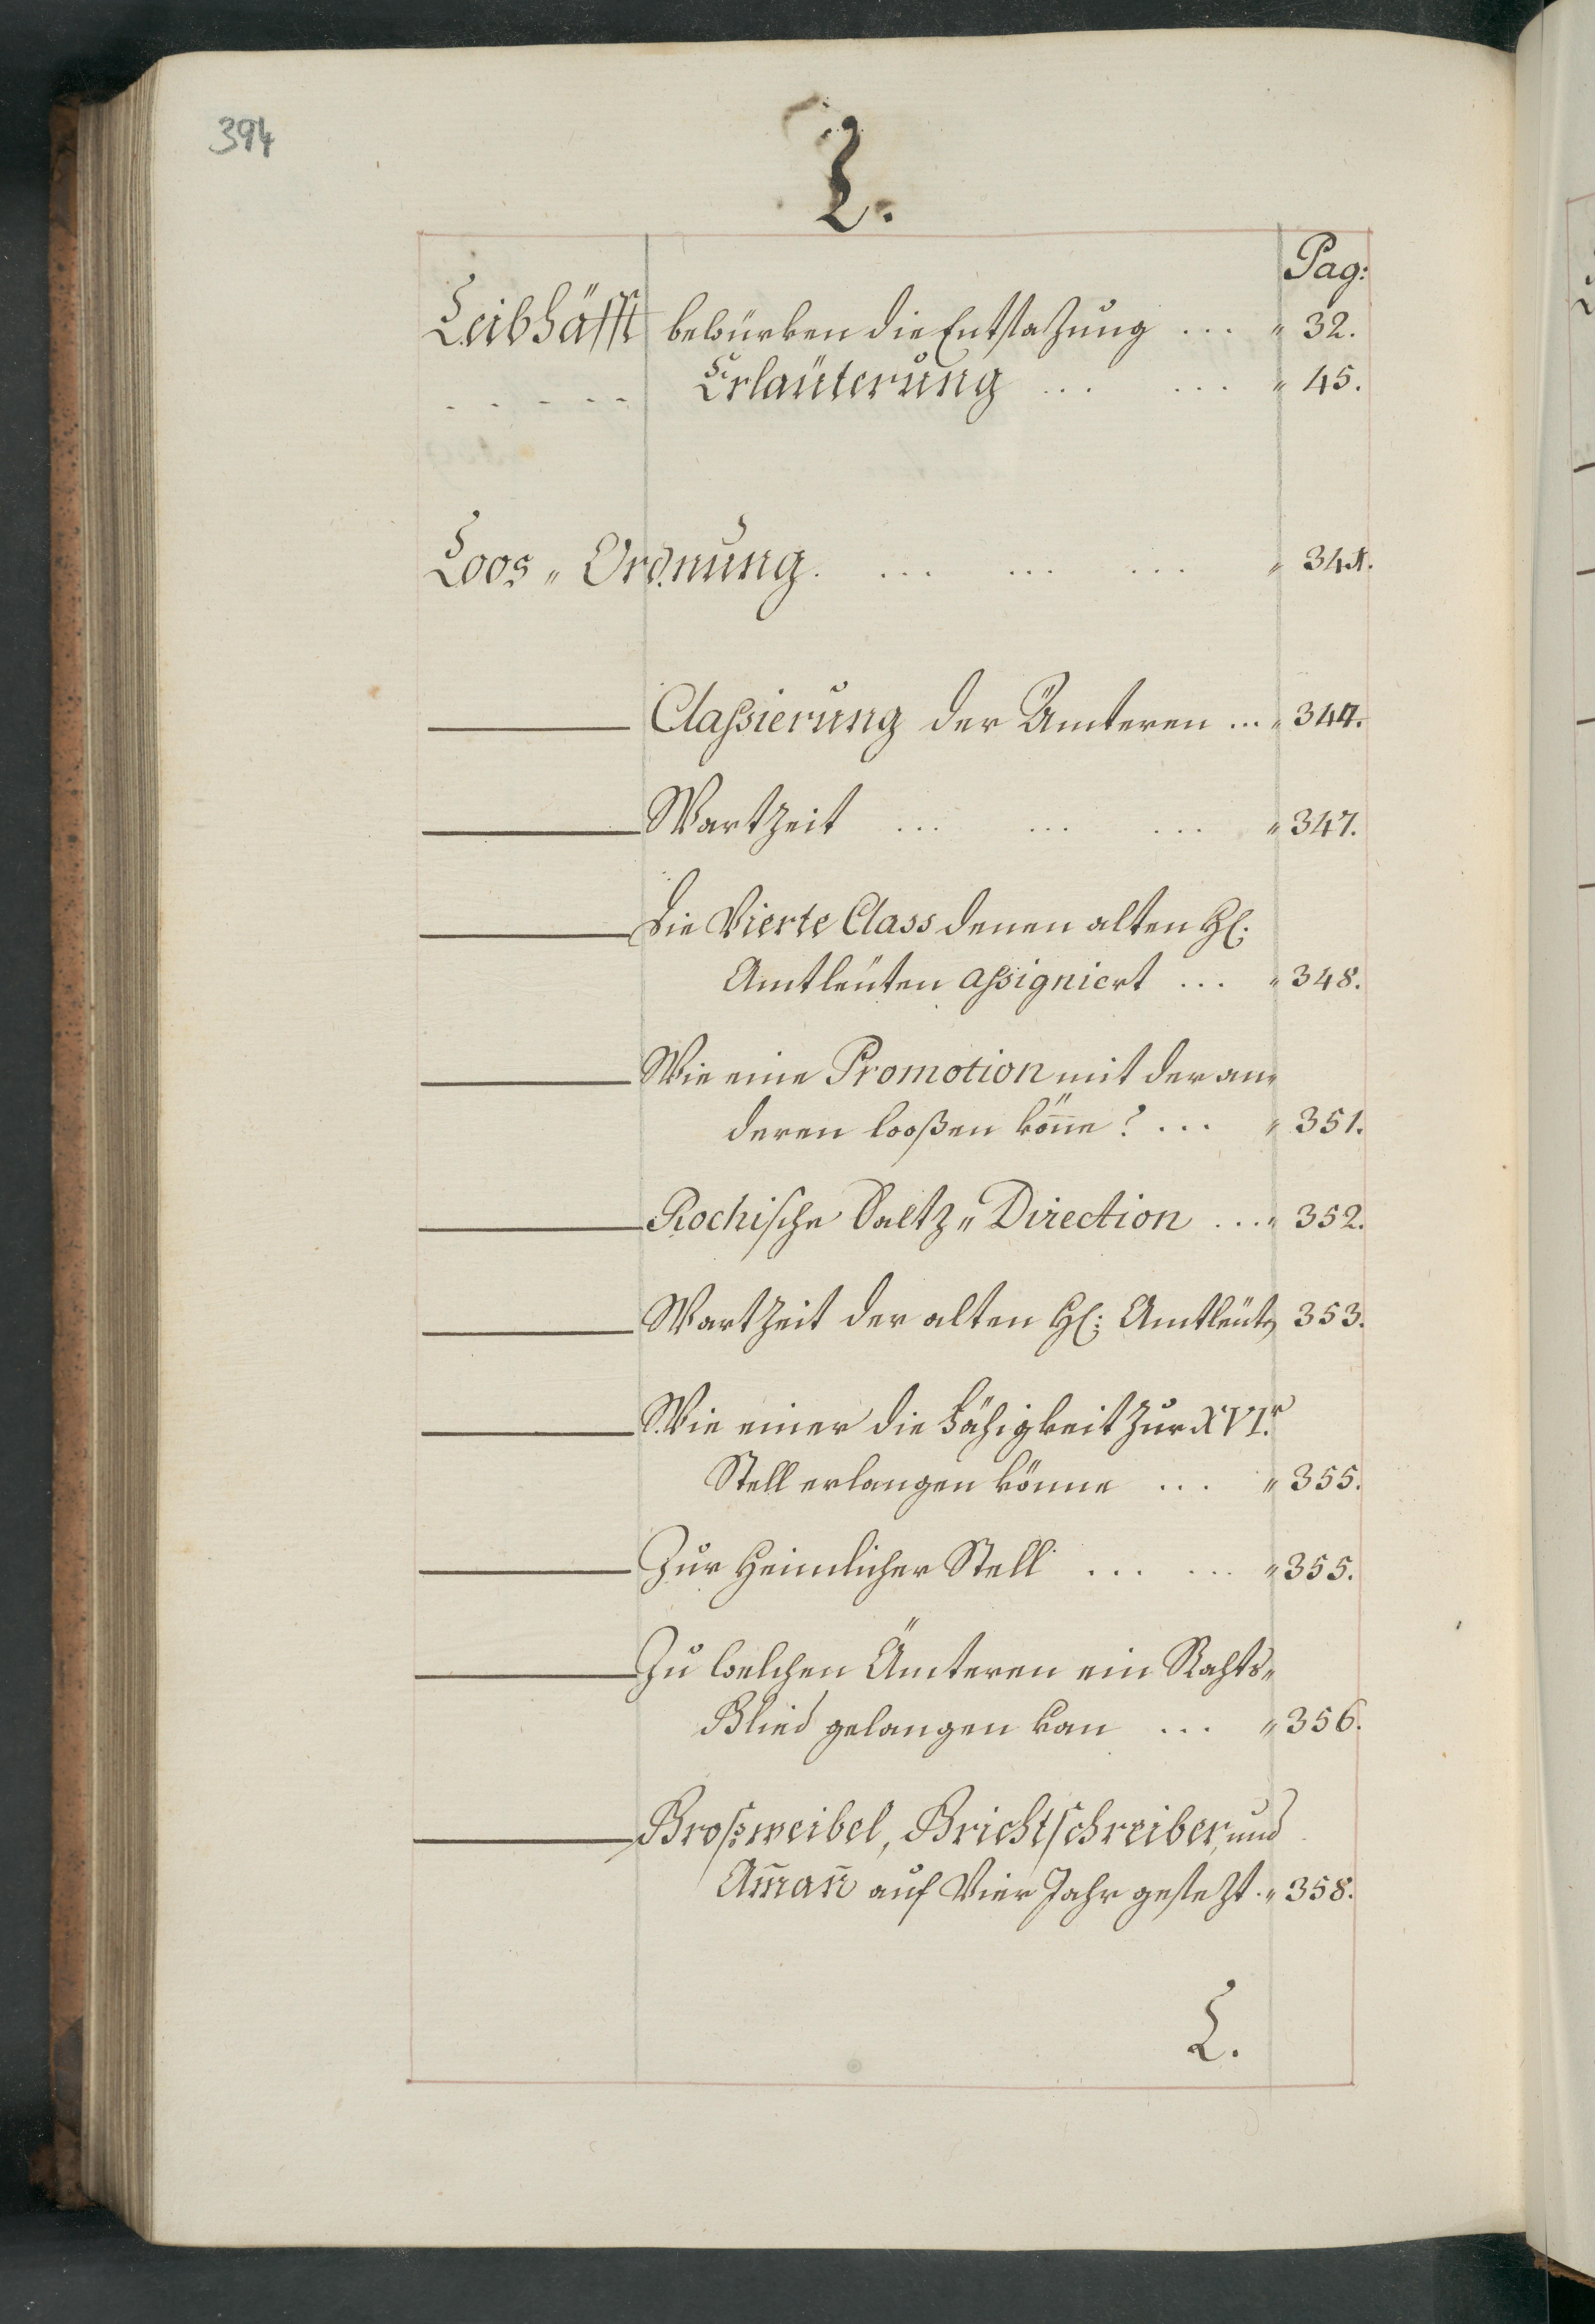 394
L.
Pag:
Leibhäfft bewürken die Entsazung ... " 32.
- - - - - Erläuterung ... ... " 45.
Loos " Ordnung. ... ... ... " 341.
Classierung der Ämteren ... " 344.
Wartzeit ... ... ... " 347.
Die Vierte Class denen alten Hl:
Amtleüten assigniert ... " 348.
Wie eine Promotion mit der an"
deren looßen kön̄e? ... " 351.
Rochische Saltz " Direction ... " 352.
Wartzeit der alten Hl: Amtleüt" 353.
Wie einer die Fähigkeit zur XVI.r
Stell erlangen könne ... " 355.
Zur Heimlicher Stell ... ... " 355.
Zu welchen Ämteren ein Rahts"
Glied gelangen kan ... " 356.
Großweibel, Grichtschreiber, und
Am̄an̄ auf Vier Jahr gesezt. " 358.
L.